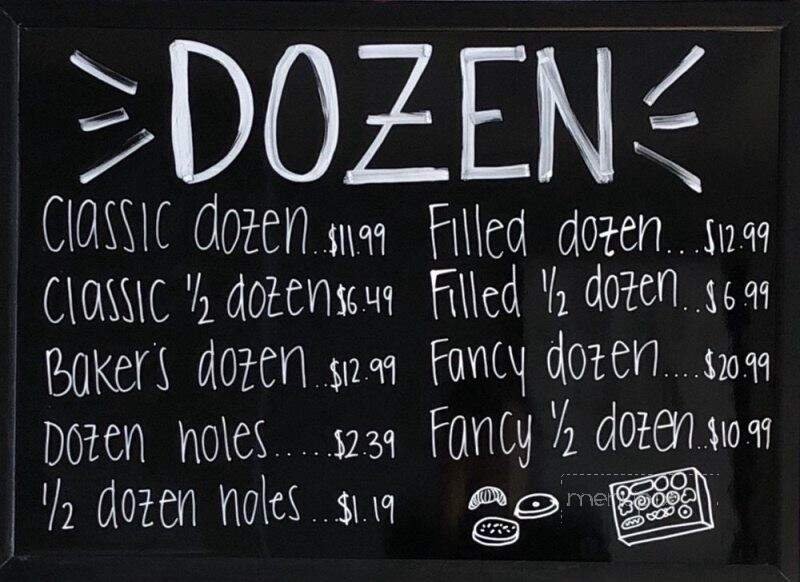 DOZEN
Classic dozen..$11.99
Classic 1/2 dozen $6.49
Baker's dozen..$12.99
Dozen holes.....$2.39
1/2 dozen holes...$1.19
Filled dozen...$12.99
Filled 1/2 dozen..$6.99
Fancy dozen....$20.99
Fancy 1/2 dozen..$10.99